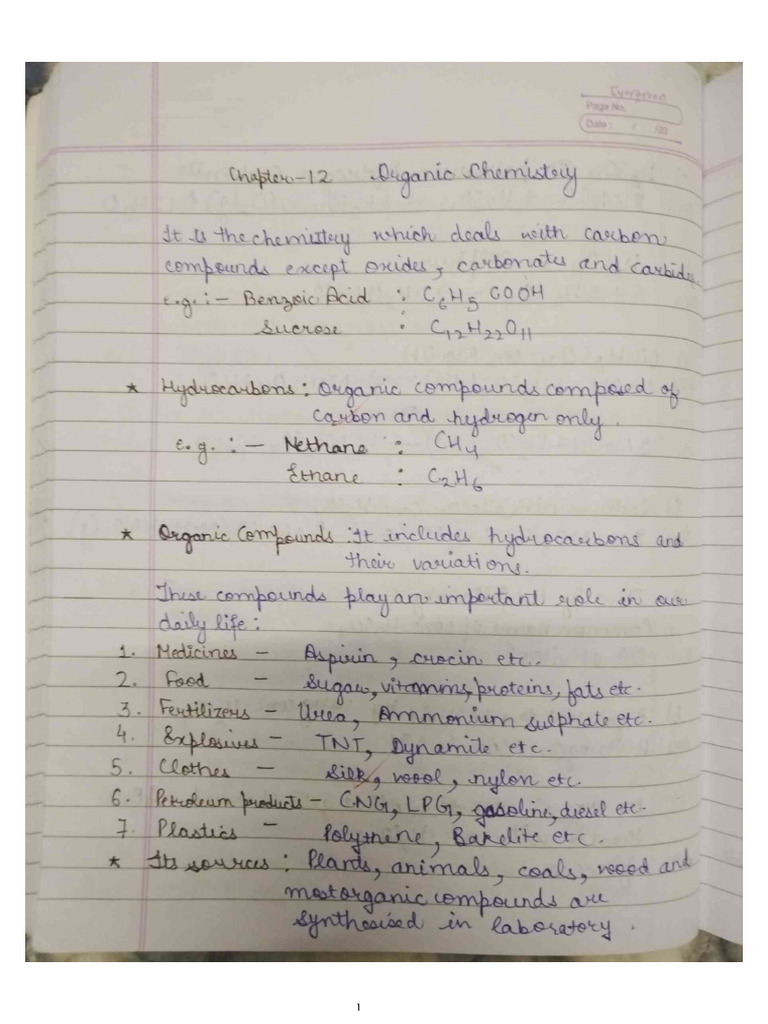 Evergreen
Page No.
Date : / /20
Chapter-12 Organic Chemistry
It is the chemistry which deals with carbon
compounds except oxides, carbonates and carbide
e.g. :- Benzoic Acid : C₆H₅COOH
Sucrose : C₁₂H₂₂O₁₁
* Hydrocarbons : Organic compounds composed of
carbon and hydrogen only.
e.g. :- Methane : CH₄
Ethane : C₂H₆
* Organic Compounds : It includes hydrocarbons and
their variations.
These compounds play an important role in our
daily life :
1. Medicines - Aspirin, crocin etc.
2. Food - Sugar, vitamins, proteins, fats etc.
3. Fertilizers - Urea, Ammonium sulphate etc.
4. Explosives - TNT, Dynamite etc.
5. Clothes - Silk, wool, nylon etc.
6. Petroleum products - CNG, LPG, gasoline, diesel etc-
7. Plastics - Polythene, Bakelite etc.
* Its sources : Plants, animals, coals, wood and
most organic compounds are
synthesised in laboratory.
1